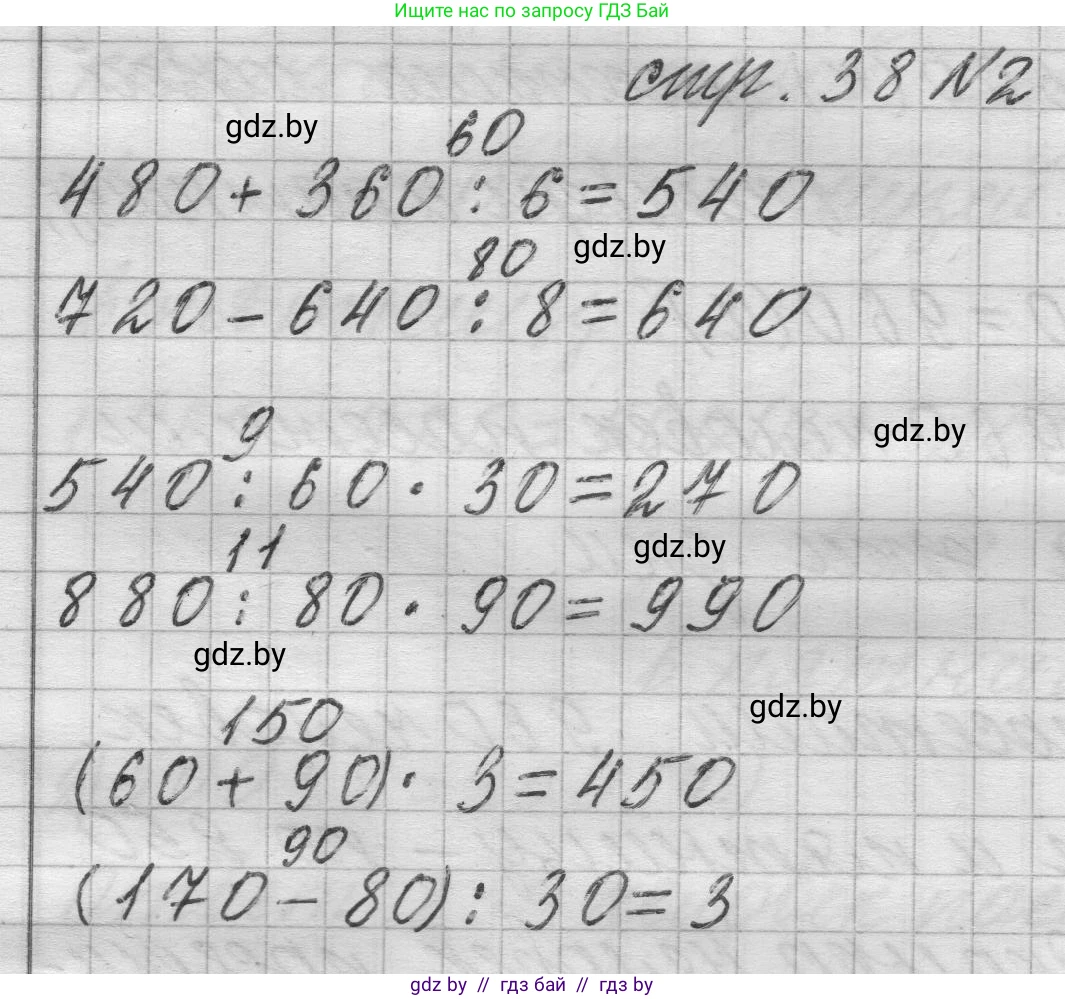 Ищите нас по запросу ГДЗ Бай
стр. 38 №2
gdz.by
60
480 + 360 : 6 = 540
80
gdz.by
720 - 640 : 8 = 640
9
gdz.by
540 : 60 · 30 = 270
11
gdz.by
880 : 80 · 90 = 990
gdz.by
150
gdz.by
(60 + 90) · 3 = 450
90
(170 - 80) : 30 = 3
gdz by // гдз бай // gdz by